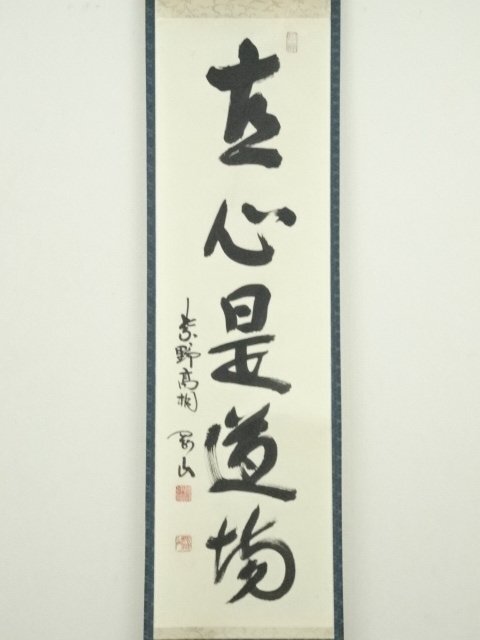 直心是道場
紫野高桐 剛山